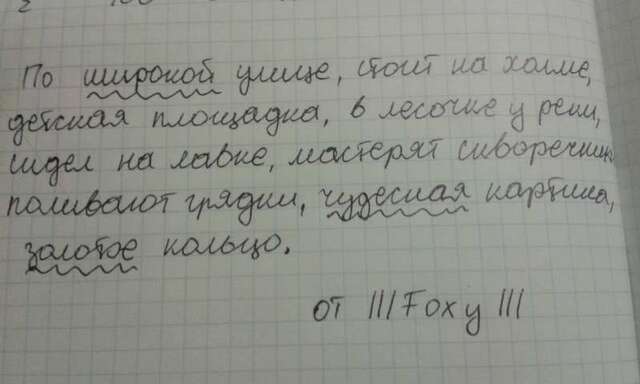 По широкой улице, стоит на холме,
детская площадка, в лесочке у реки,
сидел на лавке, мастерят скворечники
поливают грядки, чудесная картина,
золотое кольцо.
от ///Foxy///